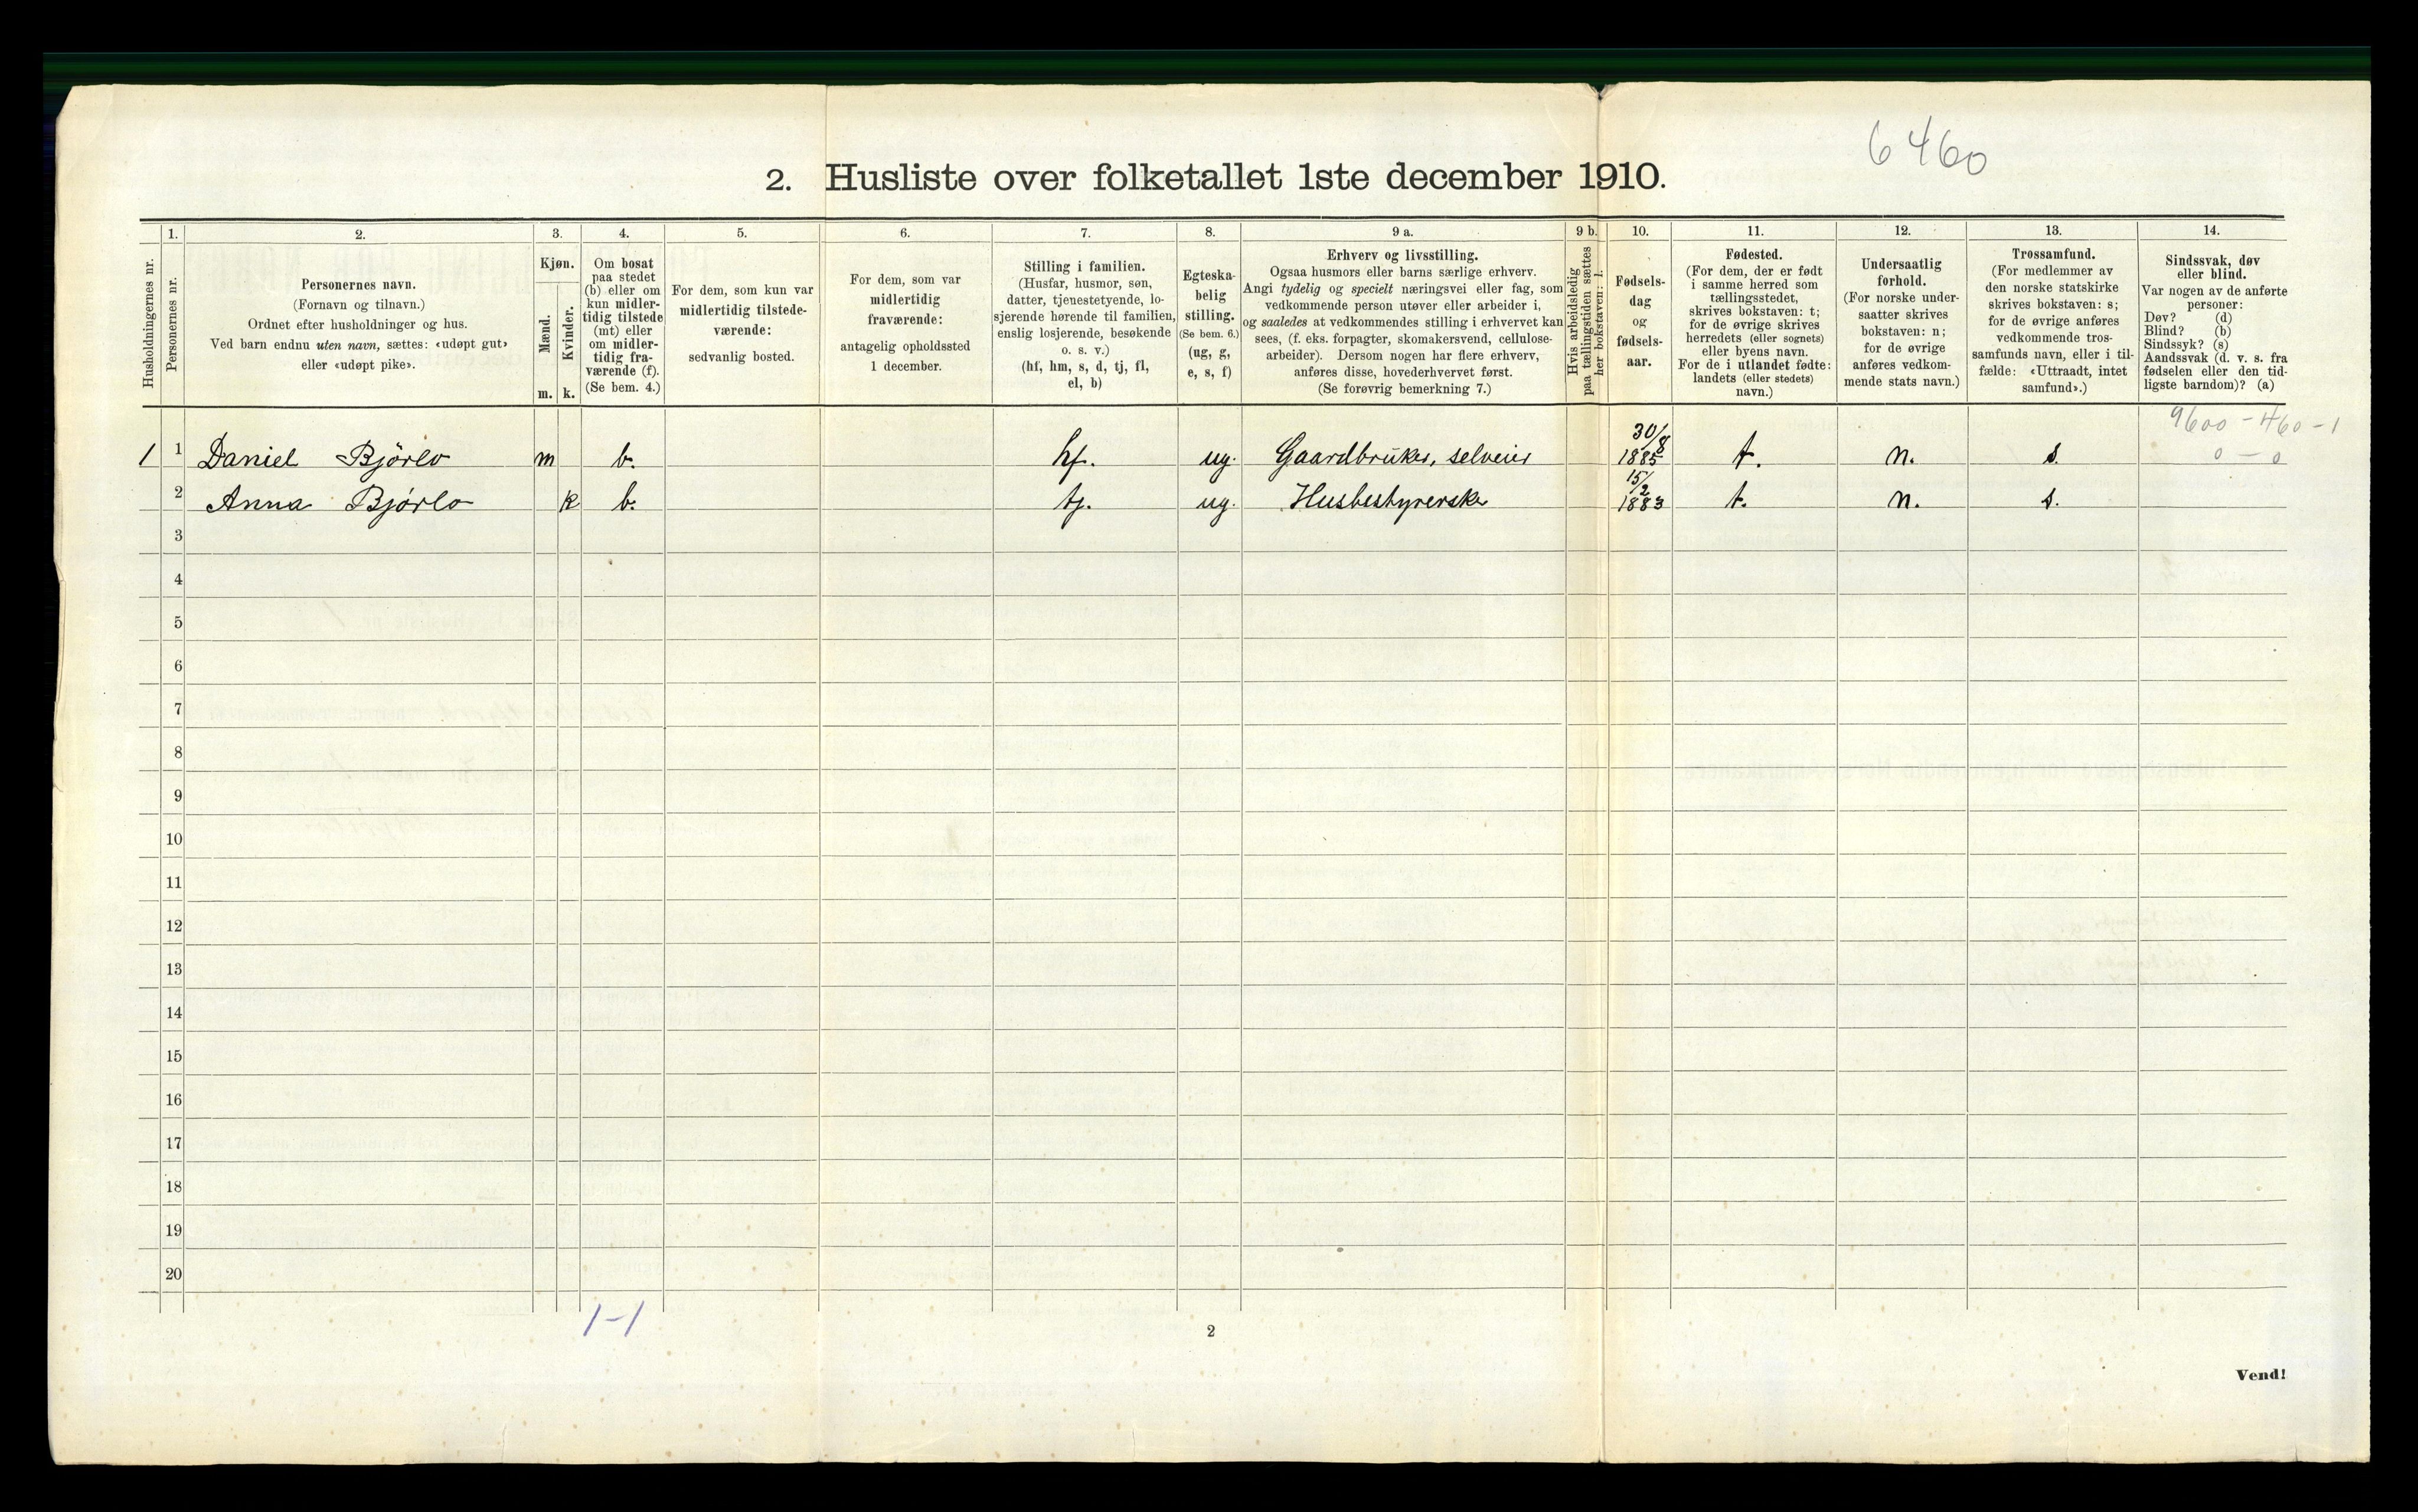 6460
2. Husliste over folketallet 1ste december 1910.
Husholdningernes nr.
1.
Personernes nr.
2.
Personernes navn.
(Fornavn og tilnavn.)
Ordnet efter husholdninger og hus.
Ved barn endnu uten navn, sættes: «udøpt gut»
eller «udøpt pike».
3.
Kjøn.
Mænd.
Kvinder.
m. k.
4.
Om bosat
paa stedet
(b) eller om
kun midler-
tidig tilstede
(mt) eller
om midler-
tidig fra-
værende (f).
(Se bem. 4.)
5.
For dem, som kun var
midlertidig tilstede-
værende:
sedvanlig bosted.
6.
For dem, som var
midlertidig
fraværende:
antagelig opholdssted
1 december.
7.
Stilling i familien.
(Husfar, husmor, søn,
datter, tjenestetyende, lo-
sjerende hørende til familien,
enslig losjerende, besøkende
o. s. v.)
(hf, hm, s, d, tj, fl,
el, b)
8.
Egteska-
belig
stilling.
(Se bem. 6.)
(ug, g,
e, s, f)
9 a.
Erhverv og livsstilling.
Ogsaa husmors eller barns særlige erhverv.
Angi tydelig og specielt næringsvei eller fag, som
vedkommende person utøver eller arbeider i,
og saaledes at vedkommendes stilling i erhvervet kan
sees, (f. eks. forpagter, skomakersvend, cellulose-
arbeider). Dersom nogen har flere erhverv,
anføres disse, hovederhvervet først.
(Se forøvrig bemerkning 7.)
9 b.
Hvis arbeidsledig
paa tællingstiden sættes
her bokstaven: l.
10.
Fødsels-
dag
og
fødsels-
aar.
11.
Fødested.
(For dem, der er født
i samme herred som
tællingsstedet,
skrives bokstaven: t;
for de øvrige skrives
herredets (eller sognets)
eller byens navn.
For de i utlandet fødte:
landets (eller stedets)
navn.)
12.
Undersaatlig
forhold.
(For norske under-
saatter skrives
bokstaven: n;
for de øvrige
anføres vedkom-
mende stats navn.)
13.
Trossamfund.
(For medlemmer av
den norske statskirke
skrives bokstaven: s;
for de øvrige anføres
vedkommende tros-
samfunds navn, eller i til-
fælde: «Uttraadt, intet
samfund».)
14.
Sindssvak, døv
eller blind.
Var nogen av de anførte
personer:
Døv? (d)
Blind? (b)
Sindssyk? (s)
Aandssvak (d. v. s. fra
fødselen eller den tid-
ligste barndom)? (a)
9600 - 460 - 1
0 - 0
1 1 Daniel Bjørlo m b. hf. ug. Gaardbruker, selveier 30/8 1885 t. n. s.
2 Anna Bjørlo k b. tj. ug. Husbestyrerske 15/2 1883 t. n. s.
3
4
5
6
7
8
9
10
11
12
13
14
15
16
17
18
19
20
1-1
2
Vend!